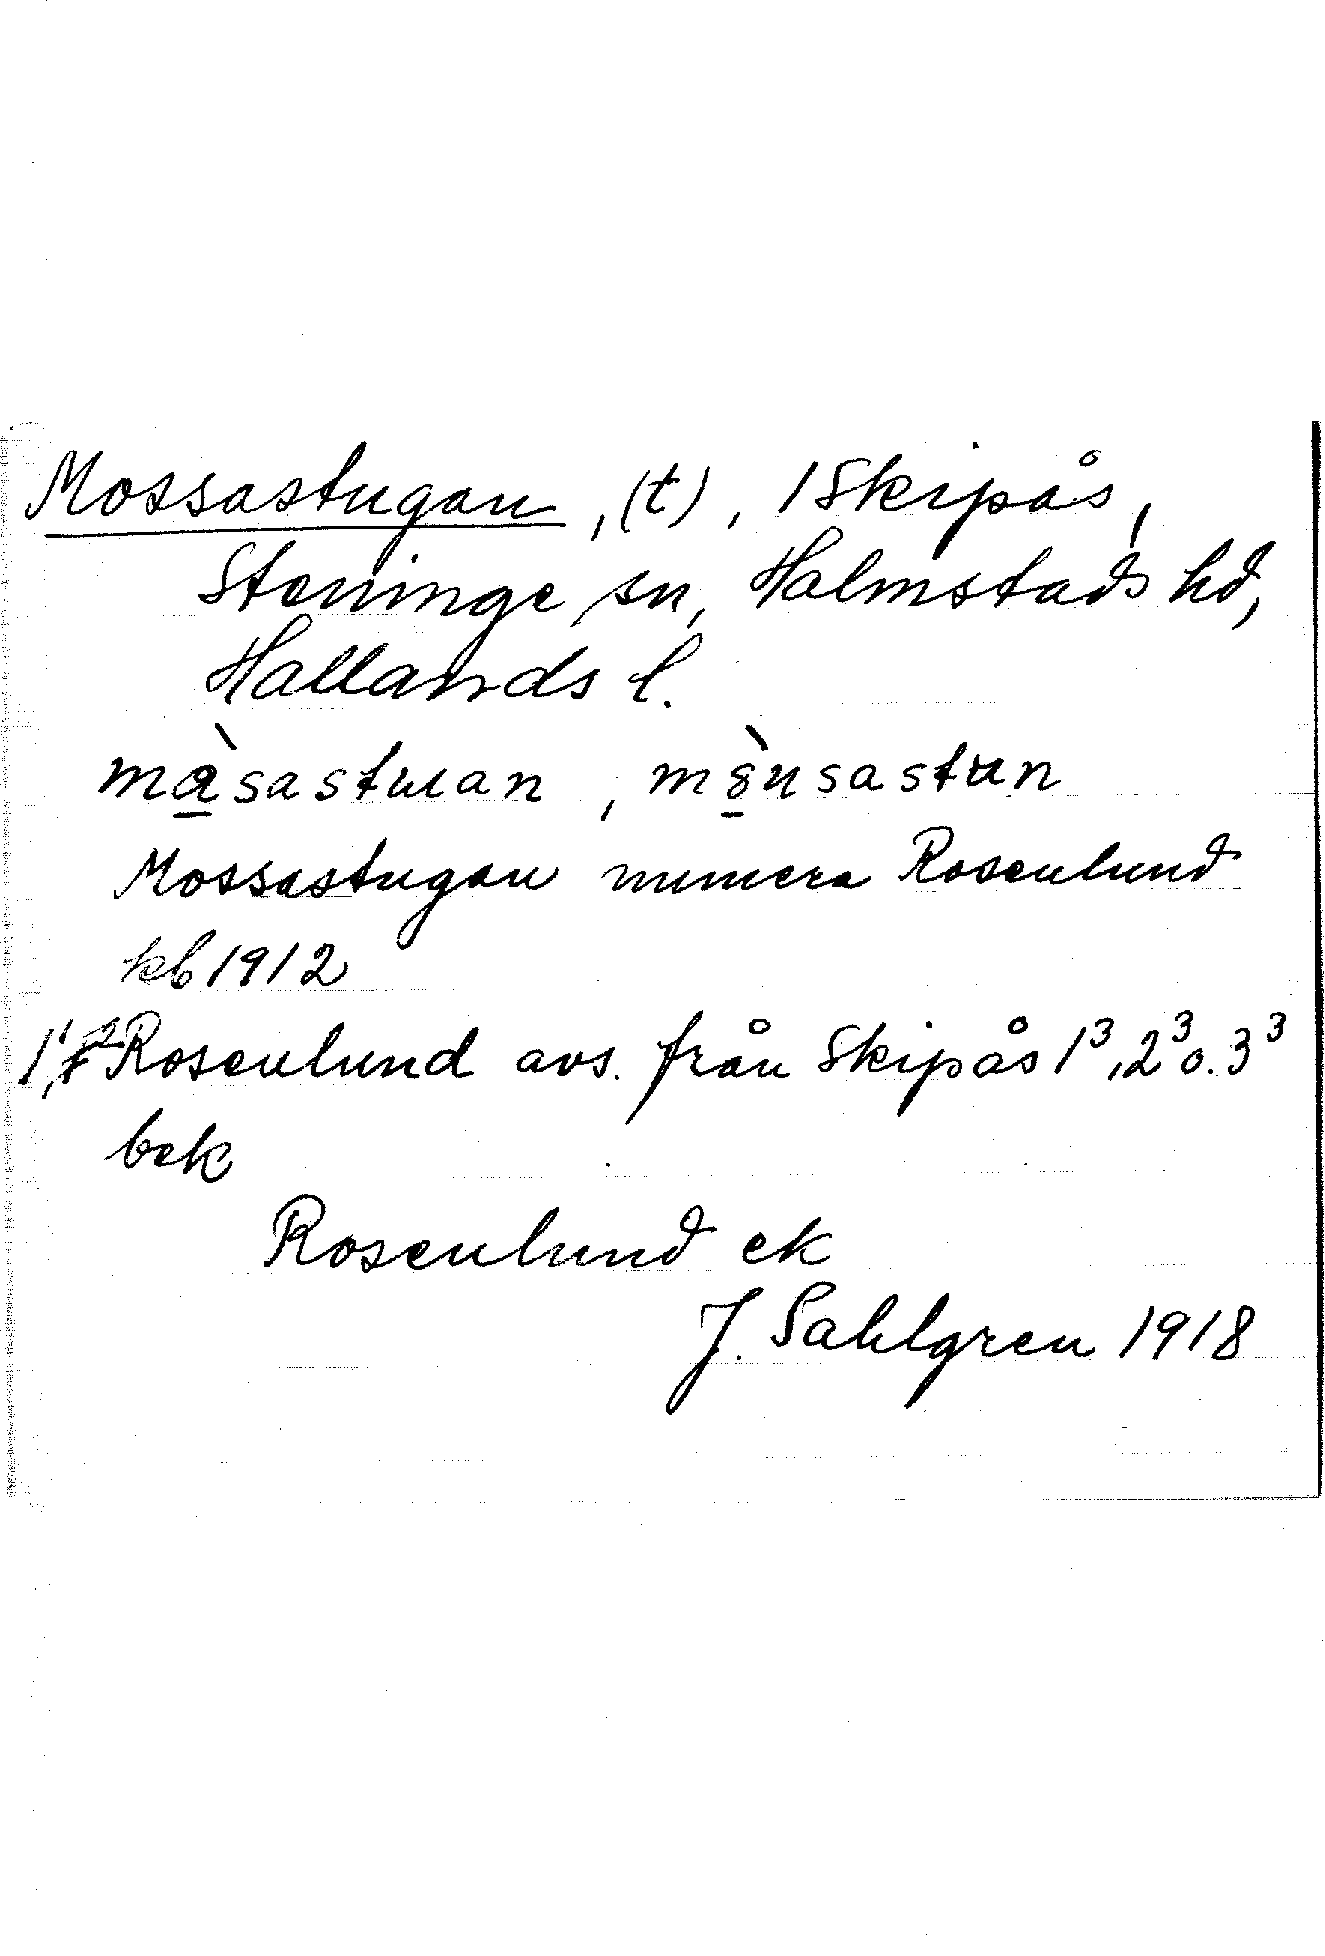 Mossastugan, (t), 1 Skipås,
Steninge sn, Halmstads hd,
Hallands l.
màsastuan,
Mossastugan numera Rosenlund
kb 1912
Rosenlund avs. från Skipås 1³, 2³ o. 3³
bek
Rosenlund ek
J. Sahlgren 1918